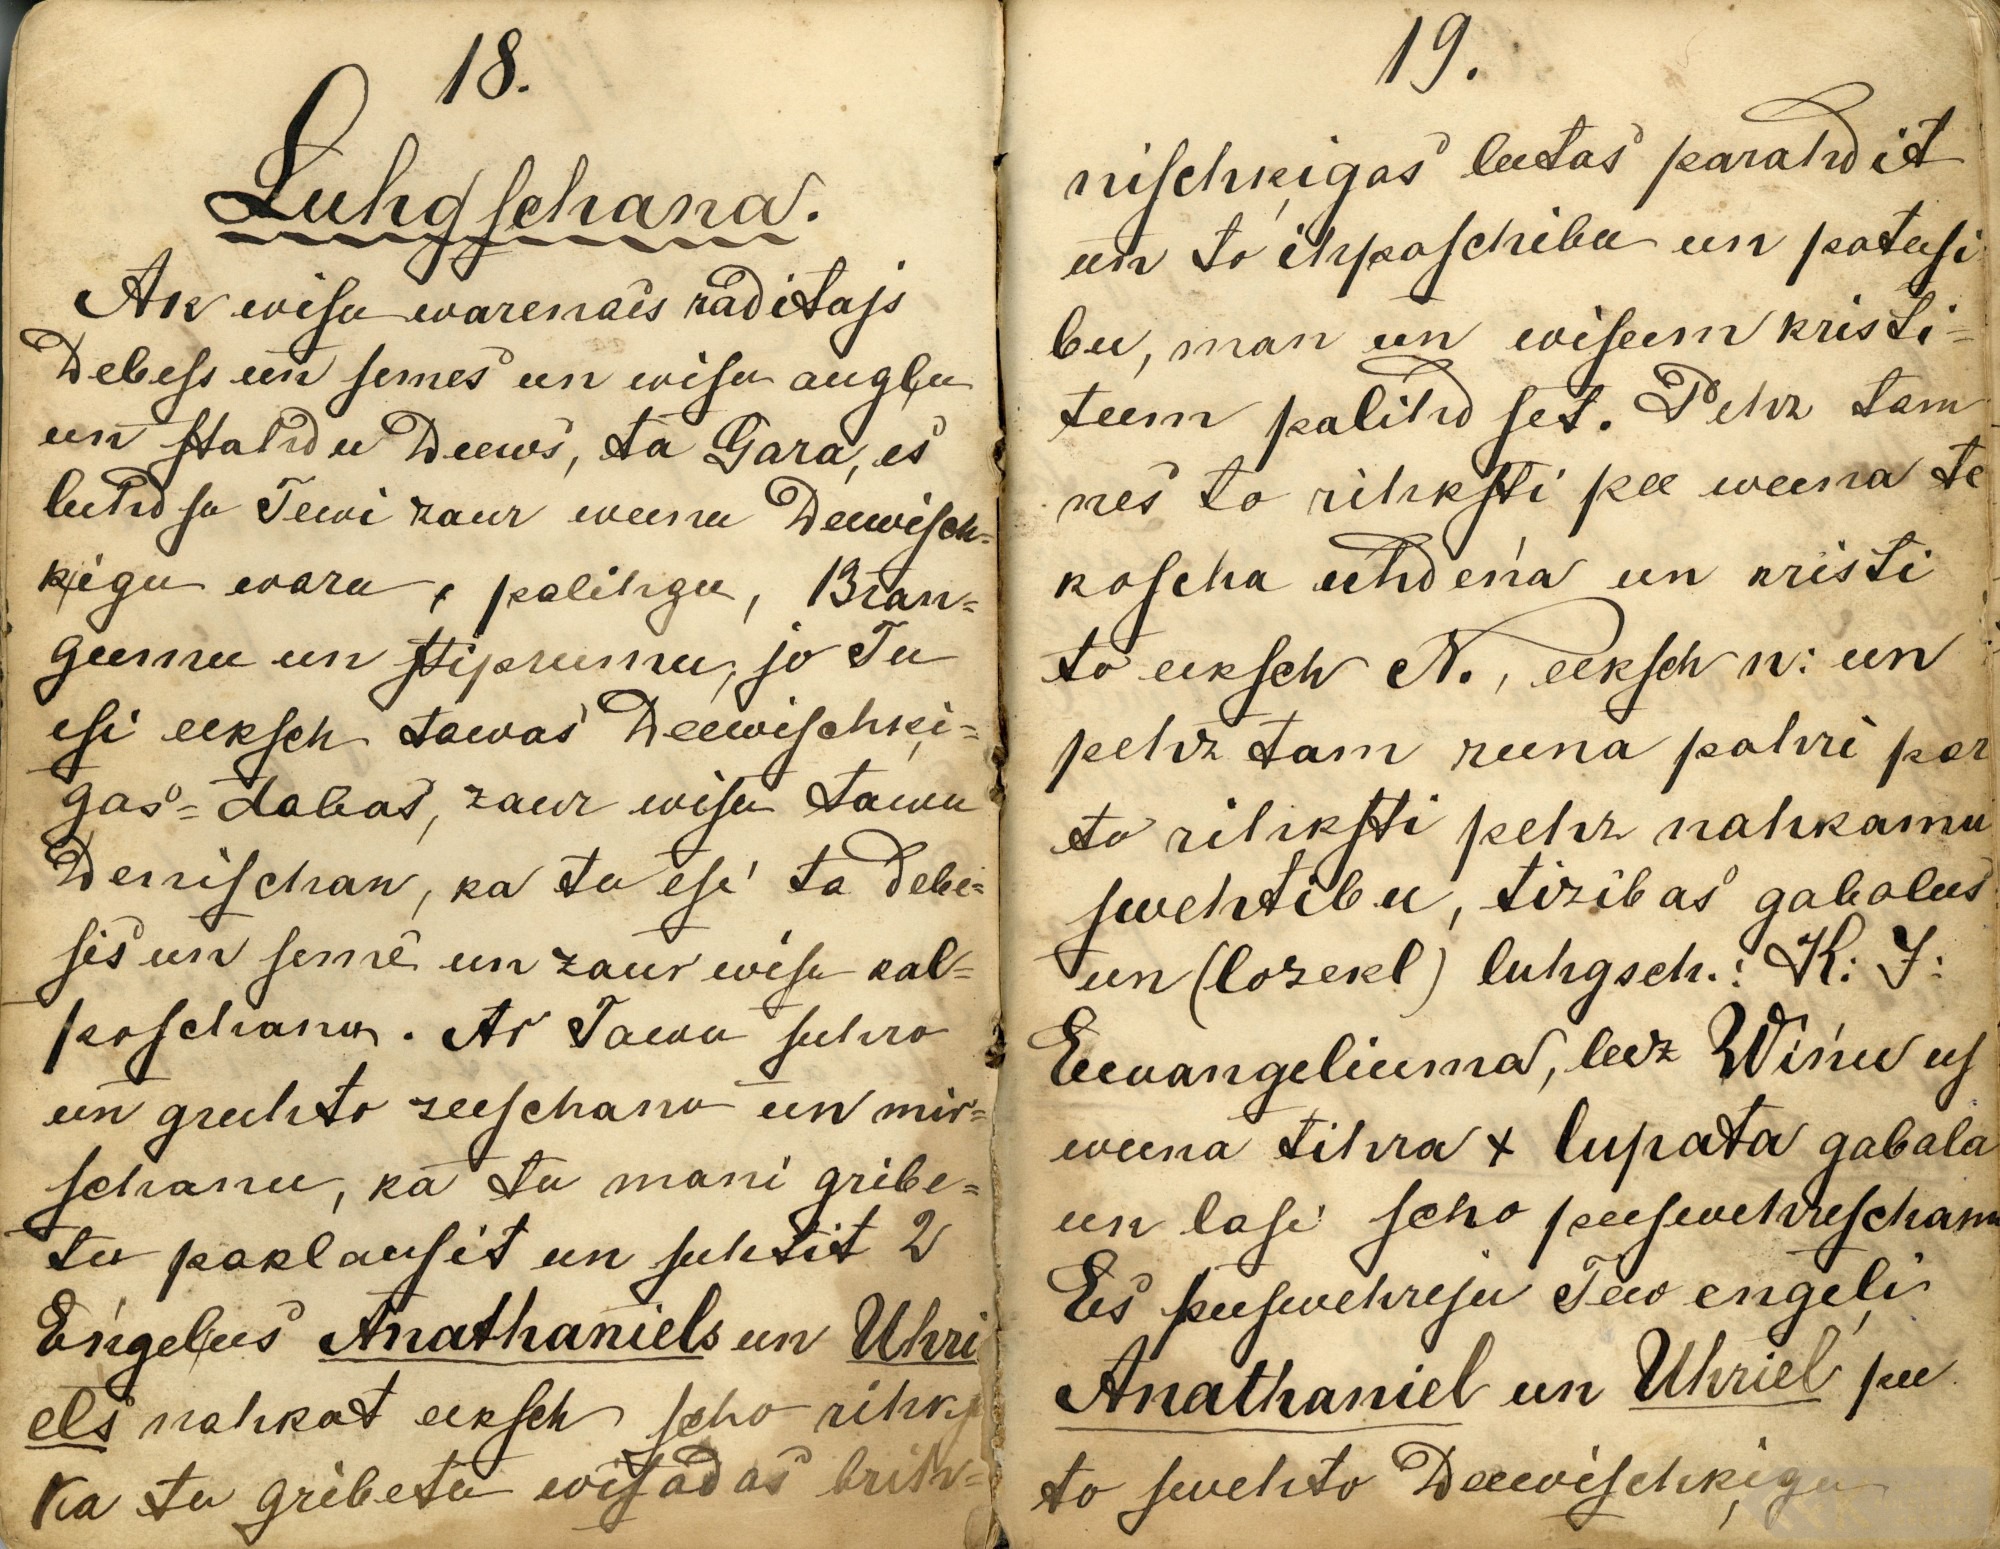 18.
Luhgschana.
Ak wisu warenais raditajs
Debess un semes un wisu angļu
un stahdu Deews, ta Gara, es
luhdsu Tewi zaur weenu Deewisch=
ķigu waru, palihgu, Bran=
gumu un stiprumu, jo Tu
esi eeksch tawas Deewischķi=
gas=dabas, zaur wisu tawu
Derrischan, ka tu esi ta debe=
sis un seme un zaur wisu kal=
poschanu. Ar Tawu suhro
un gruhto zeeschanu un mir=
schanu, ka tu mani gribe=
tu paklausit un suhtit 2
Engeļus Anathaniels un Uhri
els nahkat eeksch scho rihks
Ka tu gribetu wisadas brih=
19.
nischķigas leetas parahdit
un to ihpaschibu un pateesi
bu, man un wiseem kristi=
teem palihdset. Pehz tam
nes to rihksti pee weena te
koscha uhdeņa un kristi
to eeksch N., eeksch n: un
pehz tam runa pahri par
to rihksti pehz nahkamu
swehtibu, tizibas gabalus
un (lozekl) luhgsch.: K: J:
Eewangeliuma, leez Wiņu us
weena tihra + lupata gabala
un lasi scho peeswehreschanu
Es peeswehreju Tew engeļi
Anathaniel un Uhriel pee
to swehto Deewischķigu